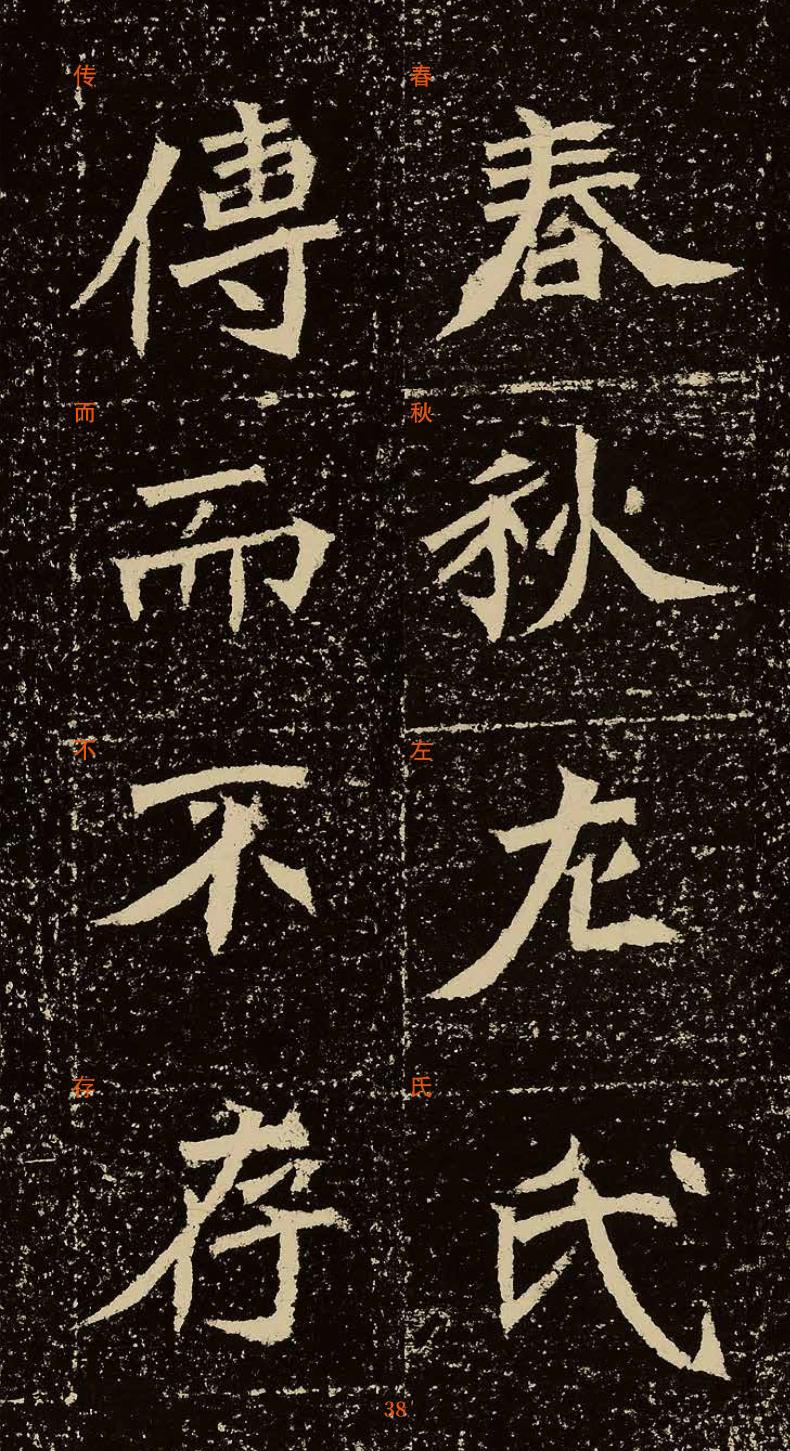 春秋左氏
傳而不存
春
秋
左
氏
传
而
不
存
38